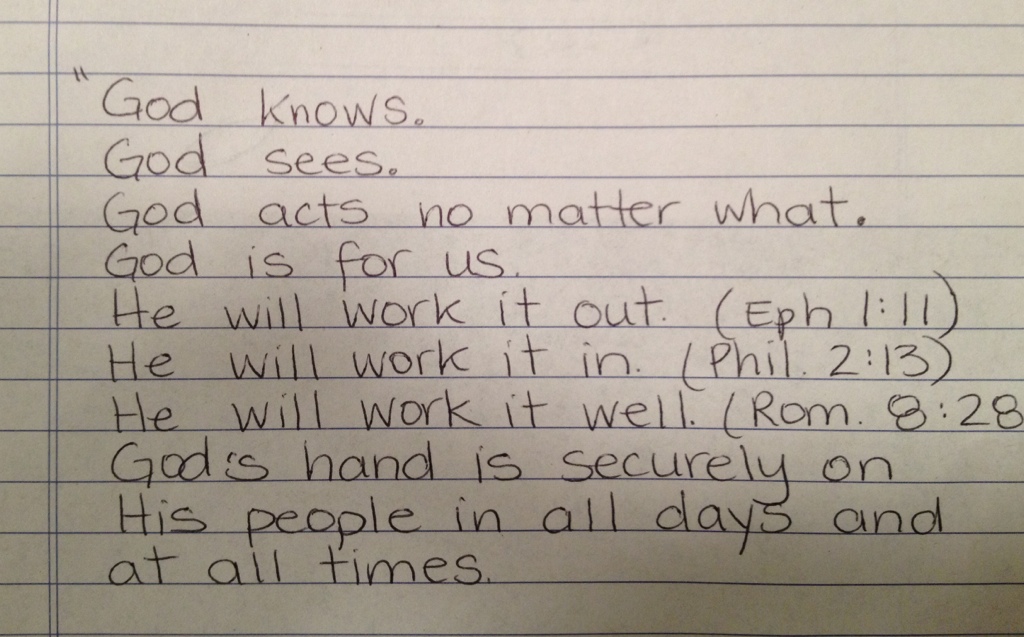 "God knows.
God sees.
God acts no matter what.
God is for us.
He will work it out. (Eph 1:11)
He will work it in. (Phil. 2:13)
He will work it well. (Rom. 8:28
God's hand is securely on
His people in all days and
at all times.